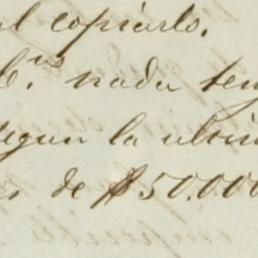 al copiarlo.
C.ⁿˢ nada ten
segun la ulti
s de $50.000